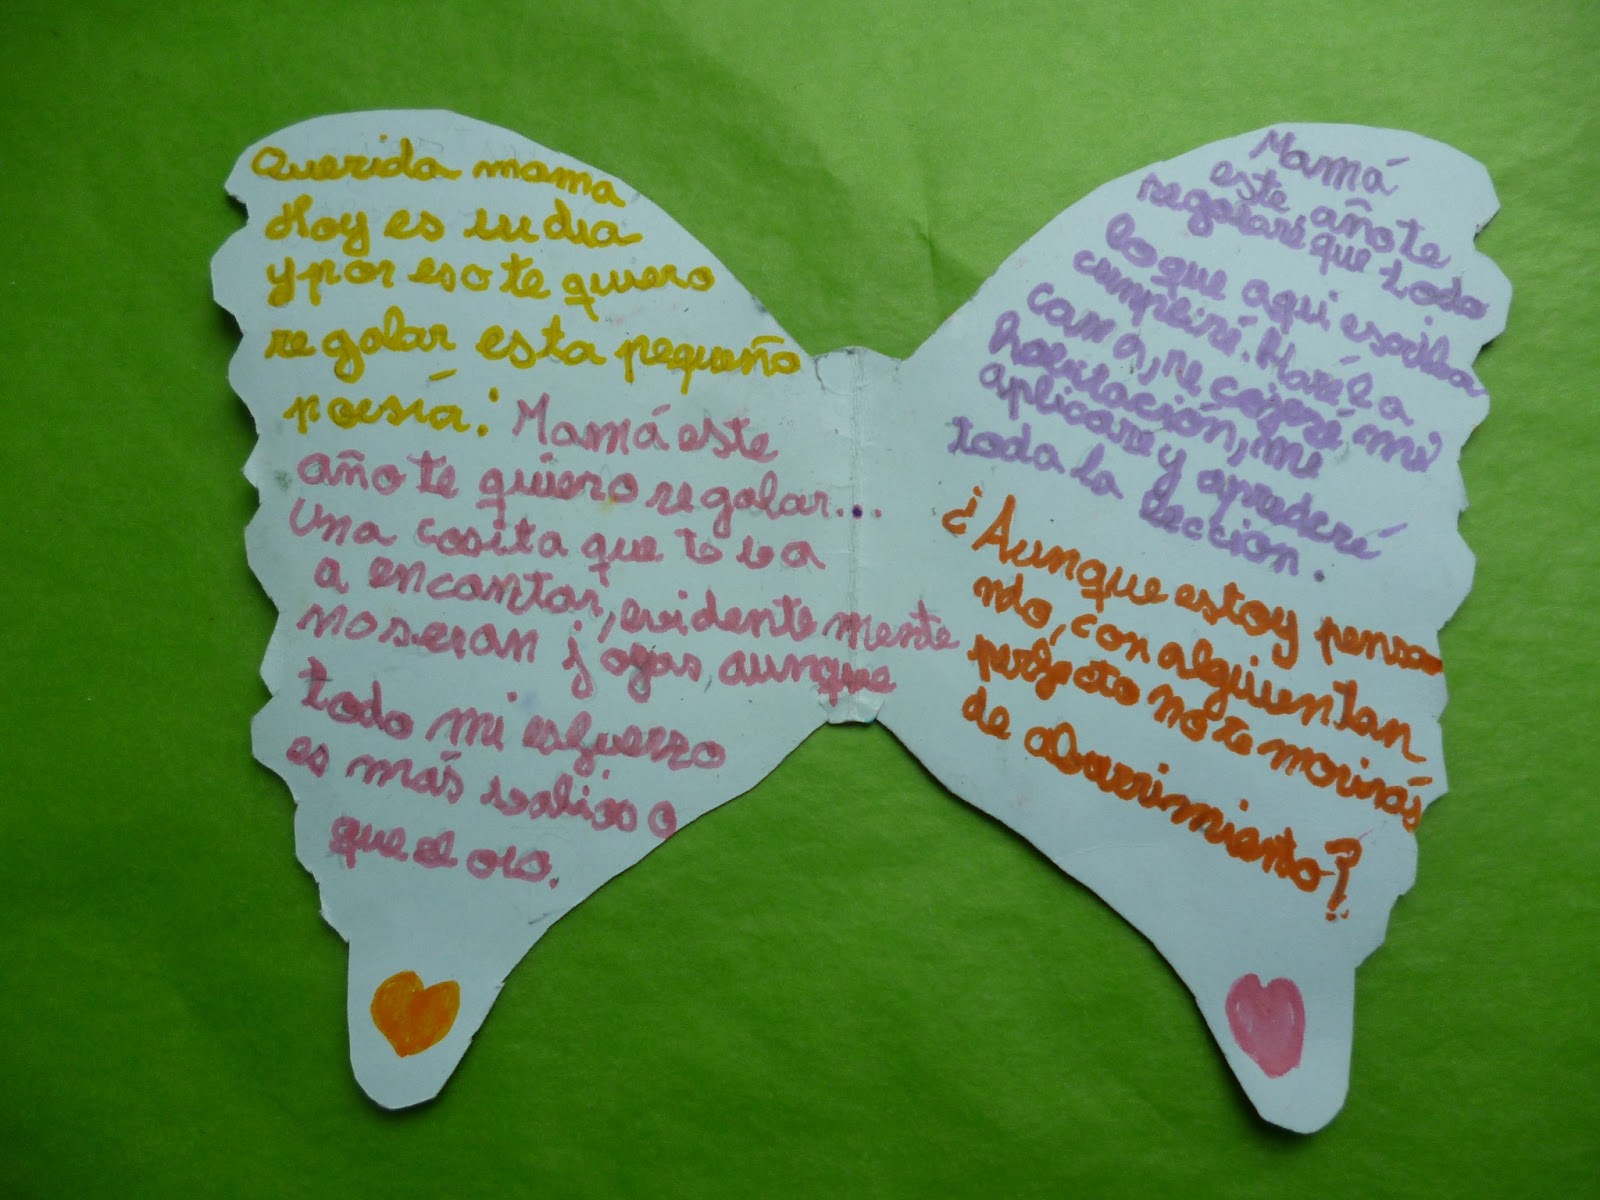 Querida mama
Hoy es tu dia
y por eso te quiero
regalar esta pequeño
poesía:
Mamá este
año te quiero regalar...
Una cosita que te va
a encantar, evidentemente
no seran joyas aunque
todo mi esfuerzo
es más valioso
que el oro.
Mamá
este año te
regalaré que todo
lo que aqui escriba
cumpliré. Haré la
cama, recojeré mi
habitación, me
aplicare y aprederé
toda la leccion.
¿Aunque estoy pensa
ndo, con alguien tan
perfecto no te morirás
de aburrimiento?